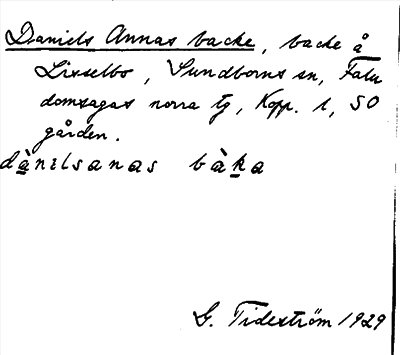 Daniels Annas backe, backe å
Lisselbo, Sundborns sn, Falu
domsagas norra tg, Kopp. l, SO
gården.
dànɩlsanas bàka
G. Tideström 1929